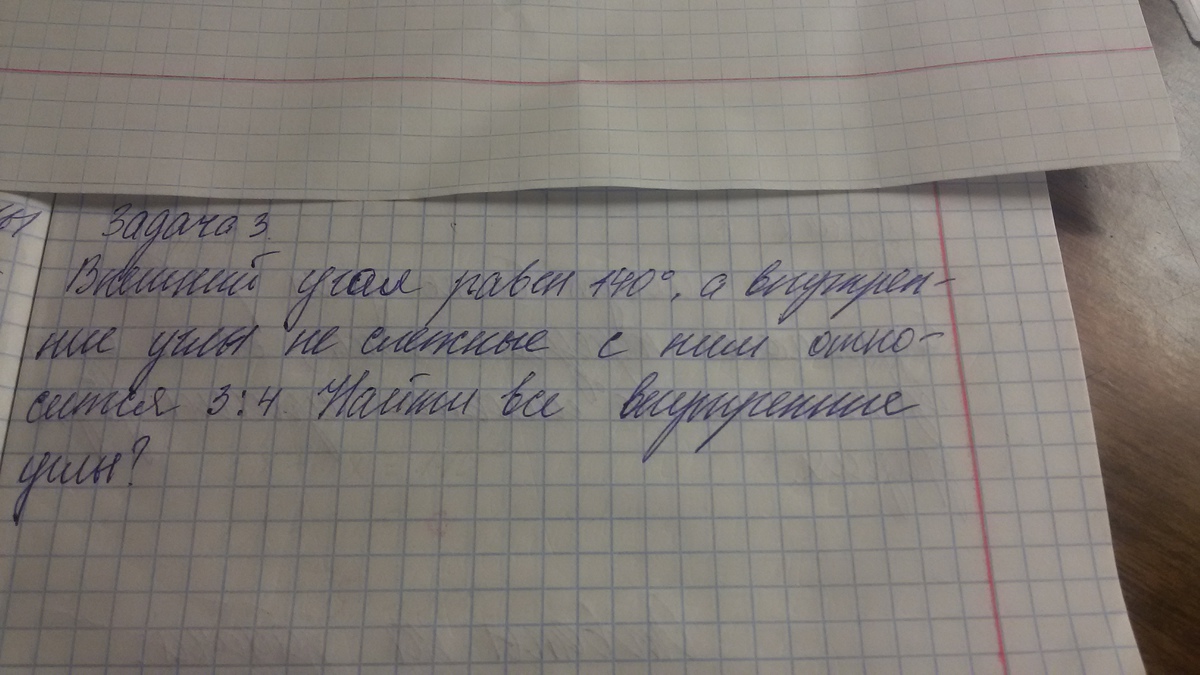 Задача 3.
Внешний угол равен 140°, а внутрен-
ние углы не смежные с ним отно-
сится 3:4. Найти все внутренние
углы?